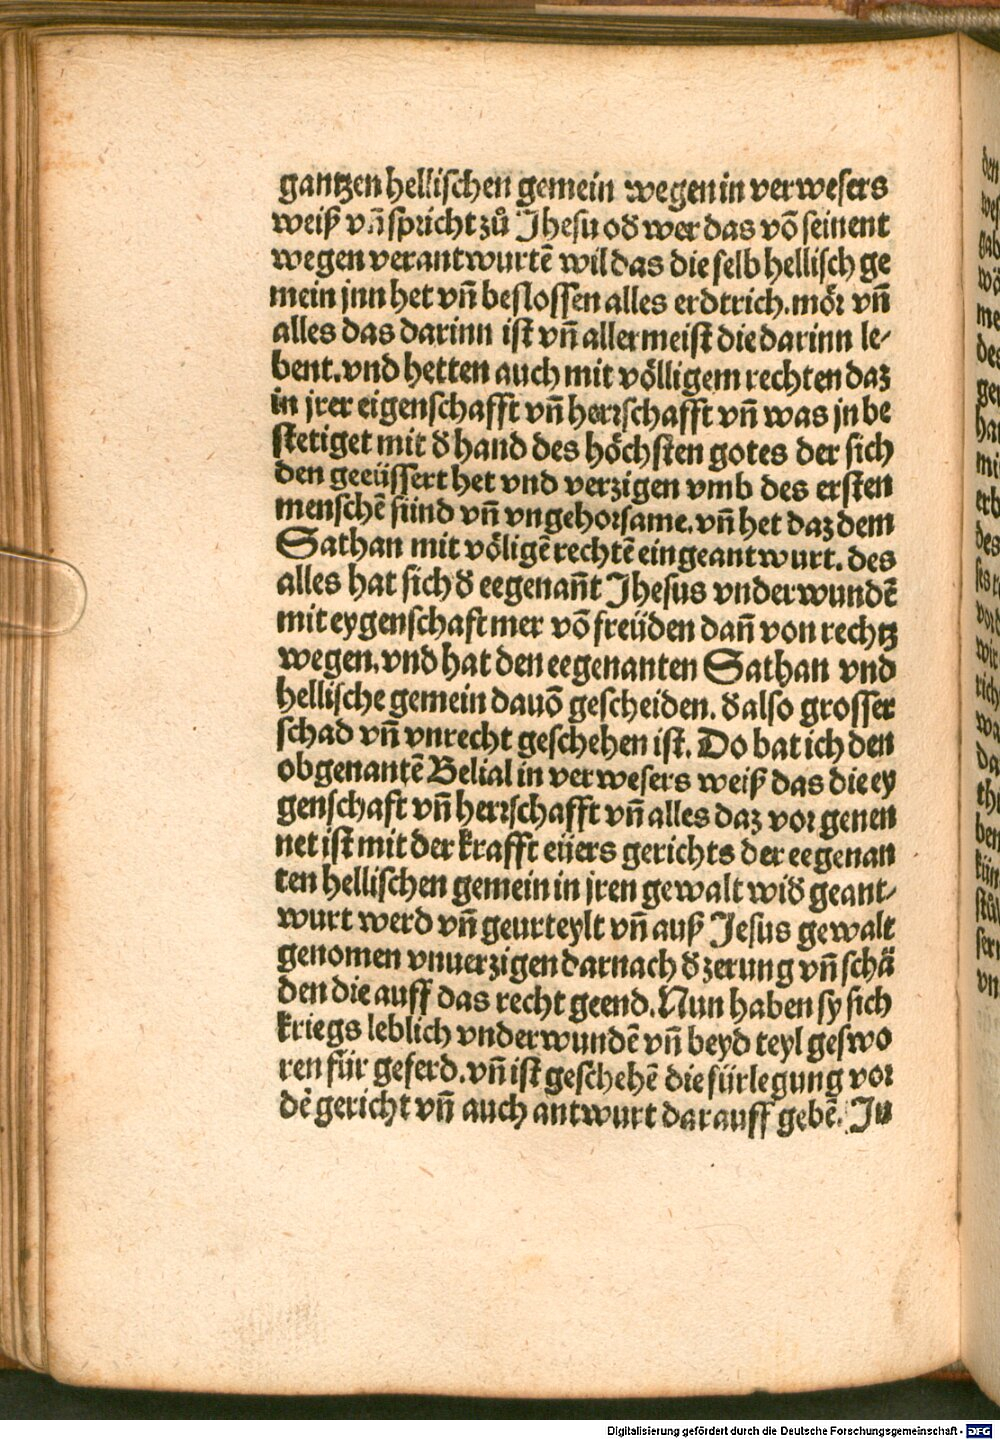 gantzen hellischen gemein wegen in verwesers
weiß vñ spricht zů Jhesu oð wer das võ seinent
wegen verantwurtē wil das die selb hellisch ge
mein jnn het vñ beslossen alles erdtrich. mör vñ
alles das darinn ist vñ allermeist die darinn le⸗
bent. vnd hetten auch mit völligem rechten daz
in jrer eigenschafft vñ herrschafft vñ was jn be
stetiget mit ð hand des höchsten gotes der sich
den geeüssert het vnd verzigen vmb des ersten
menschē sünd vñ vngehorsame. vñ het daz dem
Sathan mit völigē rechtē eingeantwurt. des
alles hat sich ð eegenañt Jhesus vnderwundē
mit eygenschaft mer võ freüden dañ von rechtz
wegen. vnd hat den eegenanten Sathan vnd
hellische gemein dauõ gescheiden. ð also grosser
schad vñ vnrecht geschehen ist. Do bat ich den
obgenantē Belial in verwesers weiß das die ey
genschaft vñ herrschafft vñ alles daz vor genen
net ist mit der krafft eüers gerichts der eegenan
ten hellischen gemein in jren gewalt wið geant⸗
wurt werd vñ geurteylt vñ auß Jesus gewalt
genomen vnuerzigen darnach ð zerung vñ schä
den die auff das recht geend. Nun haben sy sich
kriegs leblich vnderwundē vñ beyd teyl geswo
ren für geferd. vñ ist geschehē die fürlegung vor
dē gericht vñ auch antwurt darauff gebē. Ju
Digitalisierung gefördert durch die Deutsche Forschungsgemeinschaft - DFG